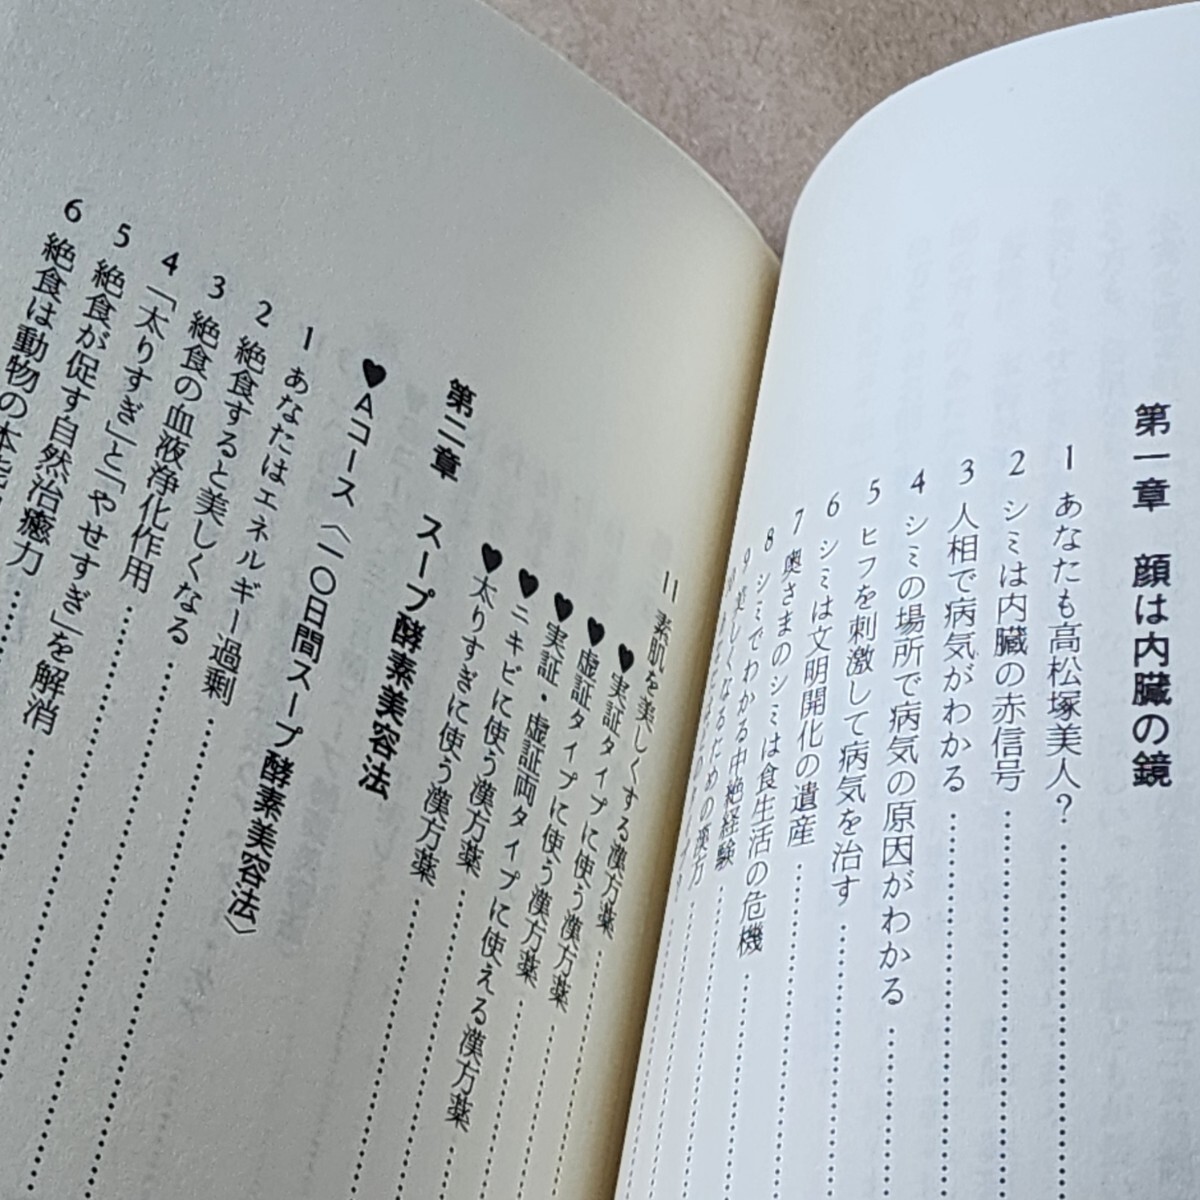 第一章 顔は内臓の鏡
1 あなたも高松塚美人?
2 シミは内臓の赤信号
3 人相で病気がわかる
4 シミの場所で病気の原因がわかる
5 ヒフを刺激して病気を治す
6 シミは文明開化の遺産
7 奥さまのシミは食生活の危機
8 シミでわかる中絶経験
9 美しくなるための漢方
11 素肌を美しくする漢方薬
♥実証タイプに使う漢方薬
♥虚証タイプに使う漢方薬
♥実証・虚証両タイプに使える漢方薬
♥ニキビに使う漢方薬
♥太りすぎに使う漢方薬
第二章 スープ酵素美容法
♥Aコース〈一〇日間スープ酵素美容法〉
1 あなたはエネルギー過剰
2 絶食すると美しくなる
3 絶食の血液浄化作用
4 「太りすぎ」と「やせすぎ」を解消
5 絶食が促す自然治癒力
6 絶食は動物の本